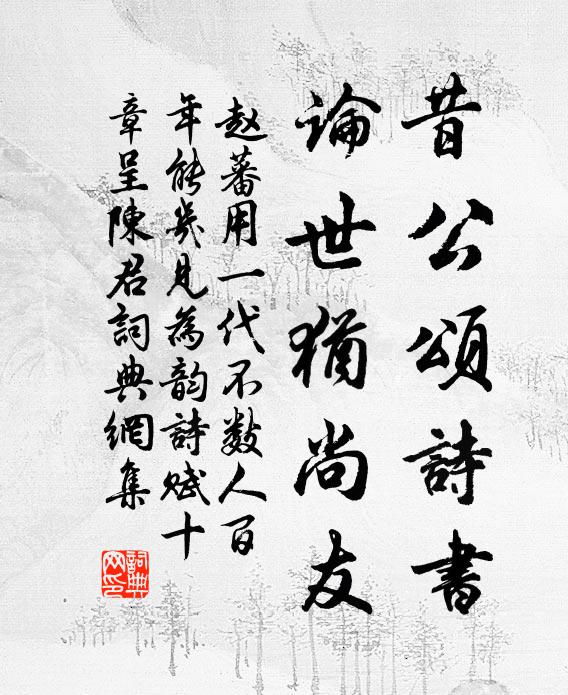 昔公頌詩書
論世猶尚友
赵蕃用一代不数人百
年能幾見為韵詩赋十
章呈陳君詞典網集
詞典
网印